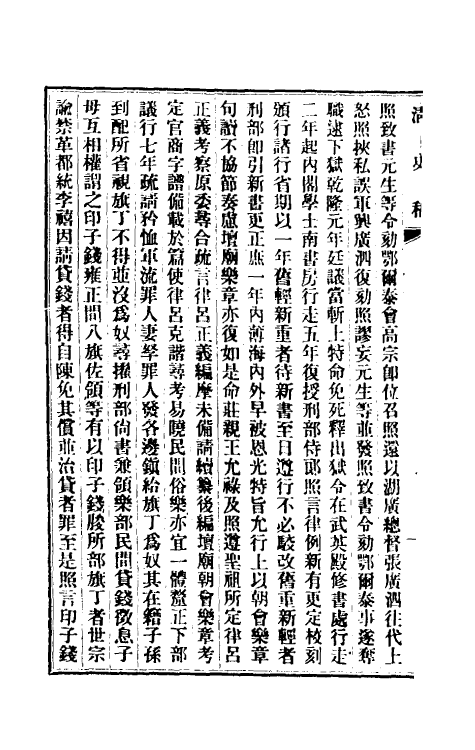 清史稿
照致書元生等令劾鄂爾泰會高宗卽位召照還以湖廣總督張廣泗往代上
怒照挾私誤軍興廣泗復劾照謬妄元生等並發照致書令劾鄂爾泰事遂奪
職逮下獄乾隆元年廷議當斬上特命免死釋出獄令在武英殿修書處行走
二年起內閣學士南書房行走五年復授刑部侍郎照言律例新有更定校刻
頒行諸行省期以一年舊輕新重者待新書至日遵行不必駁改舊重新輕者
刑部卽引新書更正庶一年內薄海內外早被恩光特旨允行上以朝會樂章
句讀不協節奏慮壇廟樂章亦復如是命莊親王允祿及照遵聖祖所定律呂
正義考察原委尋合疏言律呂正義編摩未備請續纂後編壇廟朝會樂章考
定宮商字譜備載於篇使律呂克諧尋考易曉民間俗樂亦宜一體釐正下部
議行七年疏請矜恤軍流罪人妻孥罪人發各邊鎭給旗丁爲奴其在籍子孫
到配所省視旗丁不得並沒爲奴尋擢刑部尙書兼領樂部民間貸錢徵息子
母互相權謂之印子錢雍正間八旗佐領等有以印子錢朘所部旗丁者世宗
諭禁革都統李禧因請貸錢者得自陳免其償並治貸者罪至是照言印子錢